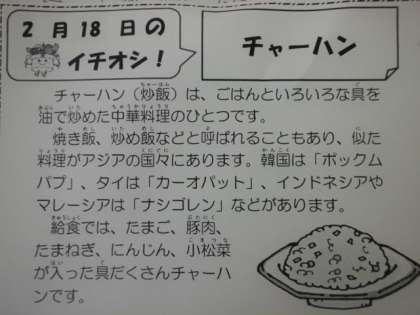 2月18日の
イチオシ！
チャーハン
チャーハン（炒飯）は、ごはんといろいろな具を
油で炒めた中華料理のひとつです。
焼き飯、炒め飯などと呼ばれることもあり、似た
料理がアジアの国々にあります。韓国は「ポックム
パプ」、タイは「カーオパット」、インドネシアや
マレーシアは「ナシゴレン」などがあります。
給食では、たまご、豚肉、
たまねぎ、にんじん、小松菜
が入った具だくさんチャーハ
ンです。